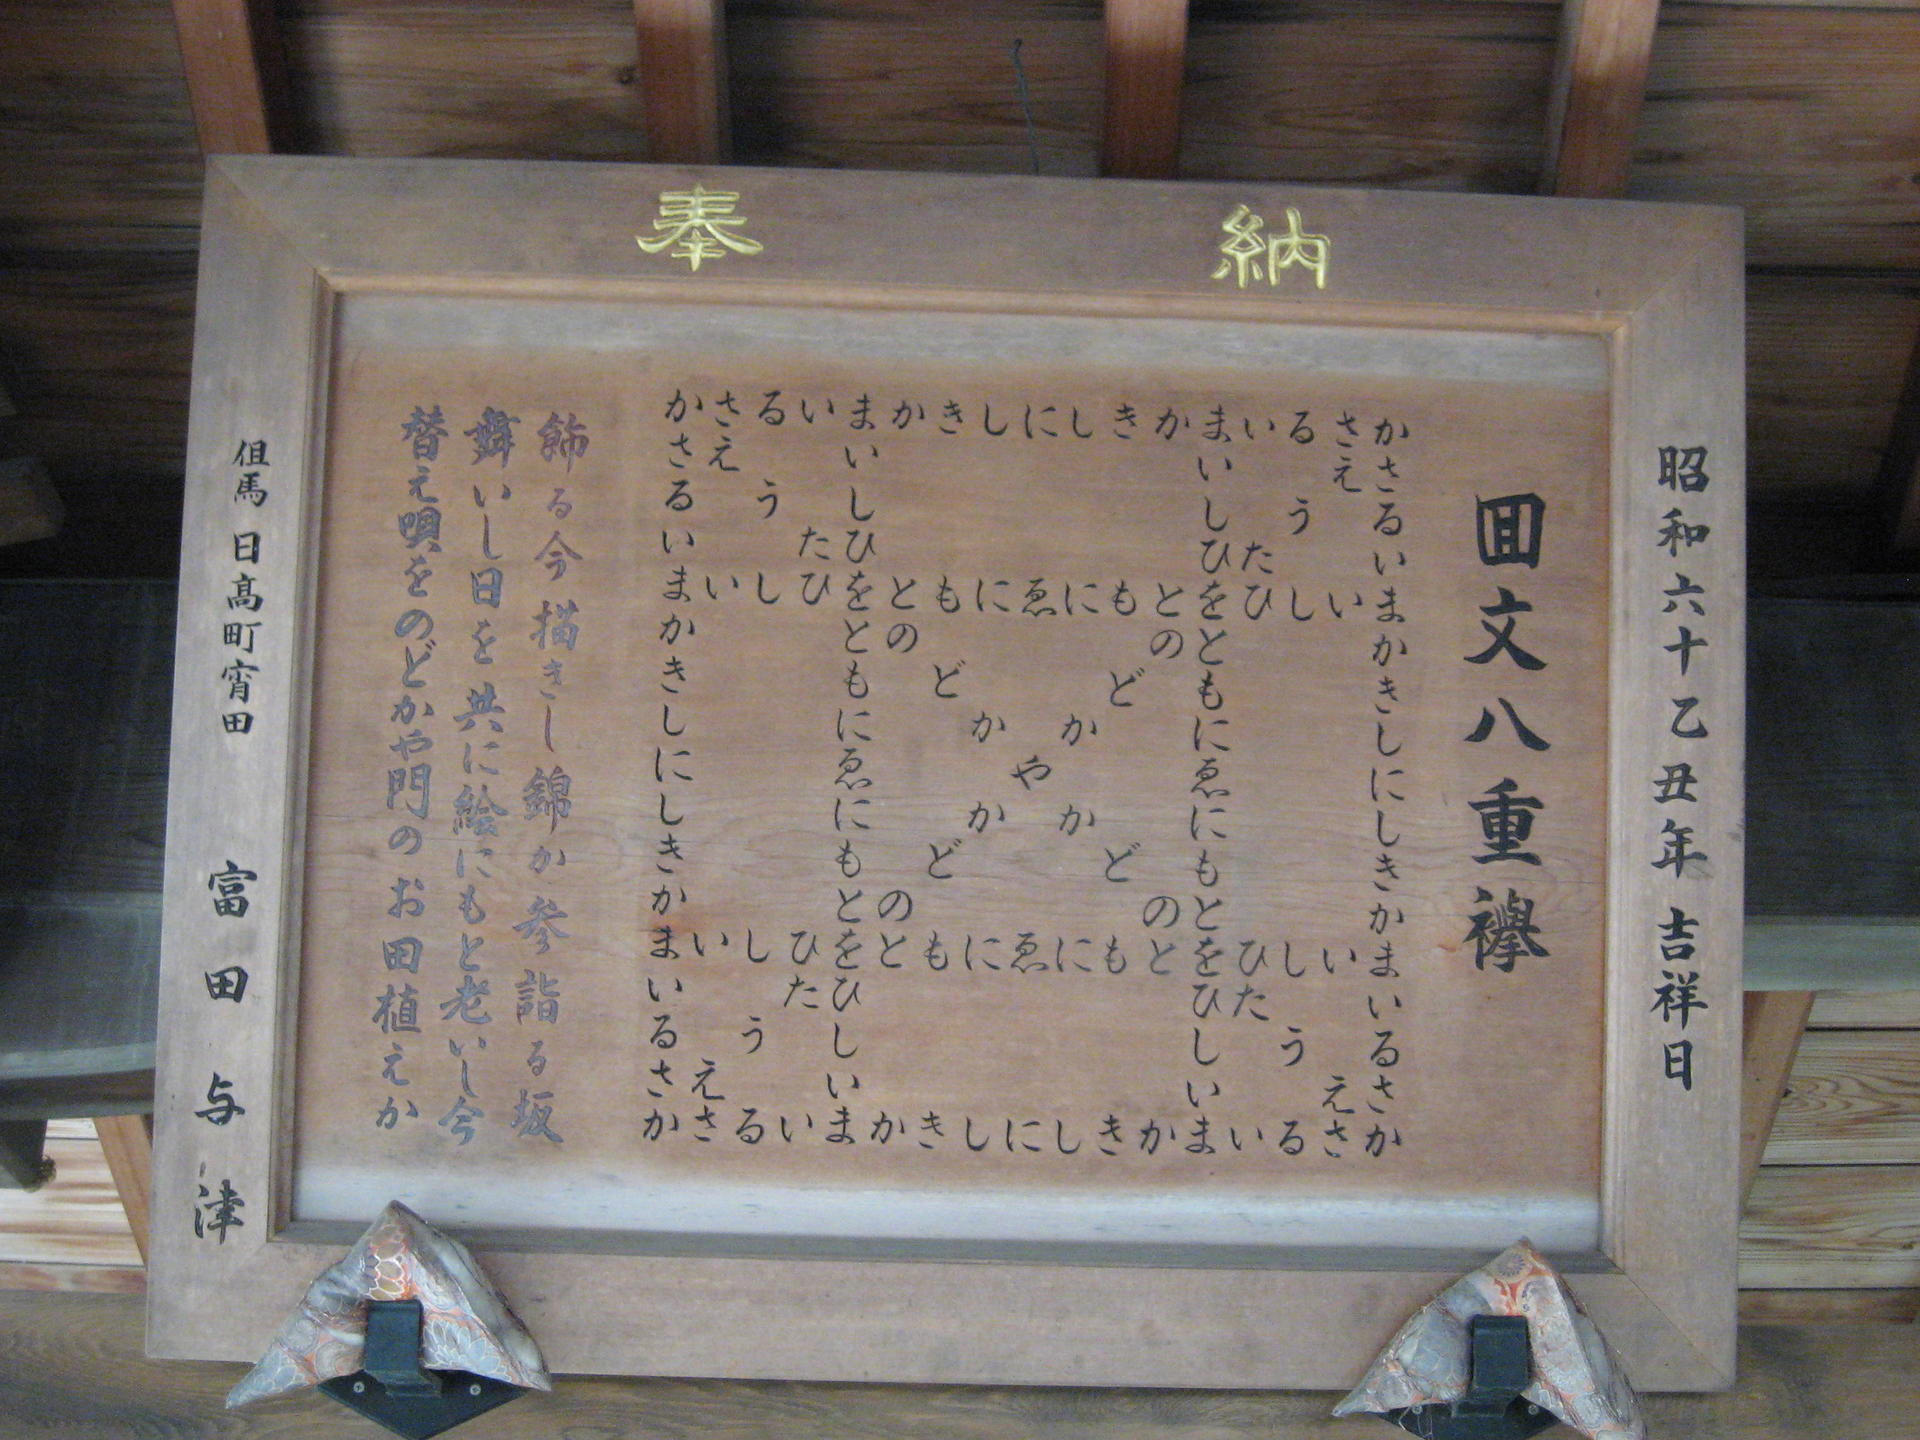 奉納
昭和六十乙丑年吉祥日
囬文八重襷
かさるいまかきしにしきかまいるさか
さえいいえさ
るうししうる
いたひひたい
まいしひをともにゑにもとをひしいま
かとののとか
きもどどもき
しにかかにし
にゑやゑに
しにかかにし
きもどどもき
かとののとか
まいしひをともにゑにもとをひしいま
いたひひたい
るうししうる
さえいいえさ
かさるいまかきしにしきかまいるさか
飾る今描きし錦か参詣る坂
舞いし日を共に絵にもと老いし今
替え唄をのどかや門のお田植えか
但馬 日高町宵田 富田与津